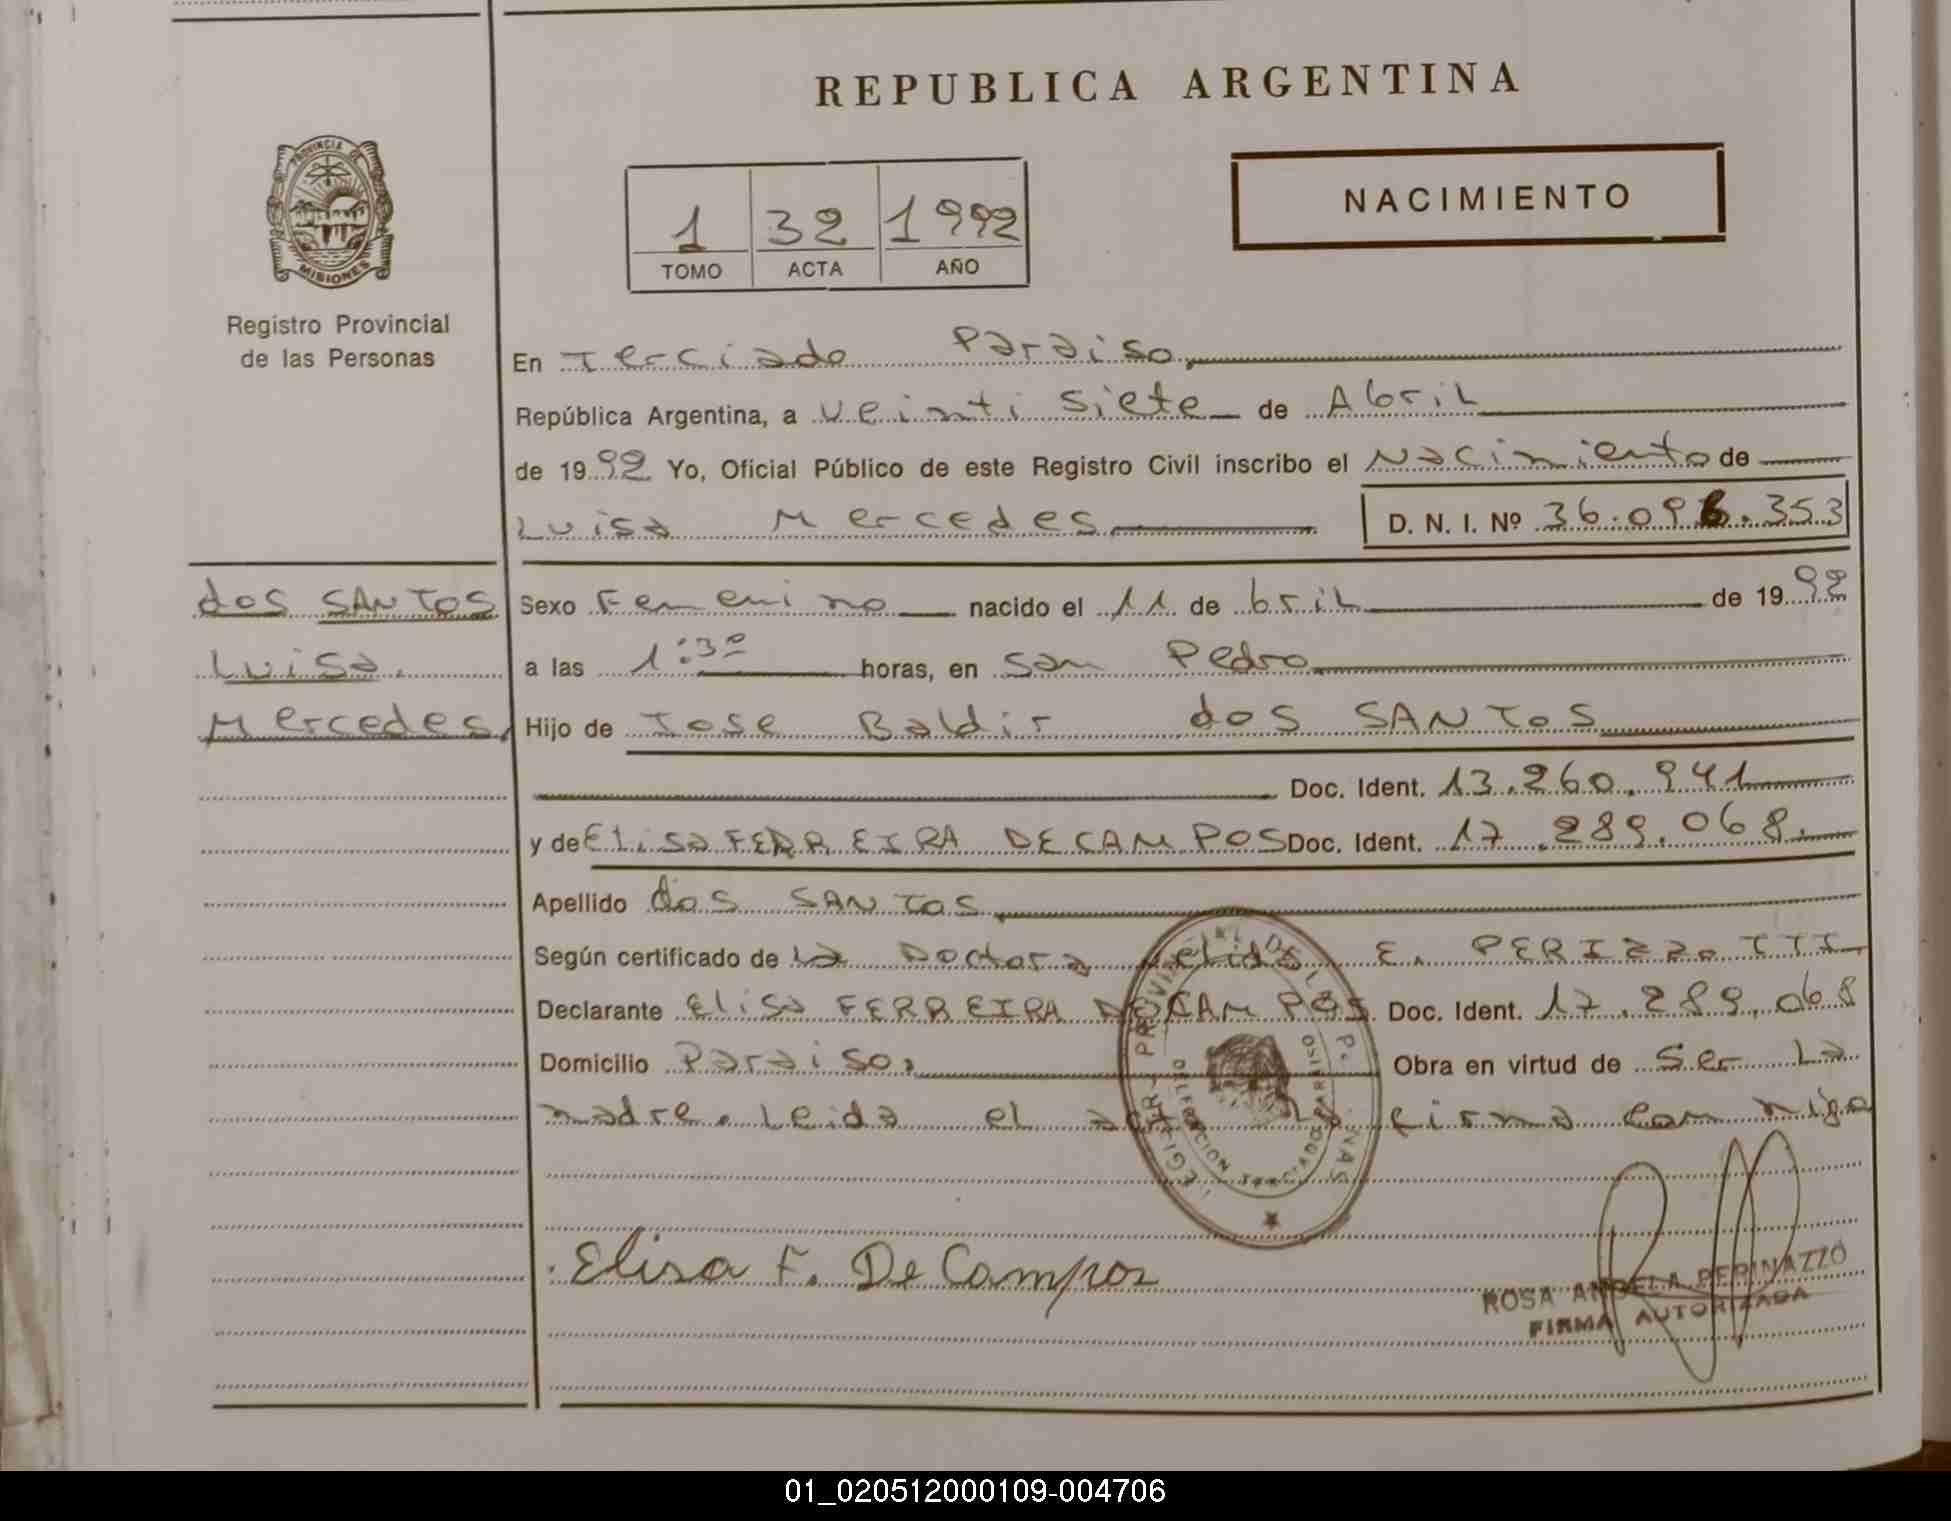 REPUBLICA ARGENTINA
PROVINCIA DE MISIONES
NACIMIENTO
1 32 1992
TOMO ACTA AÑO
Registro Provincial
de las Personas
En Terciado Paraiso,
República Argentina, a veinti siete de Abril
de 1992 Yo, Oficial Público de este Registro Civil inscribo el Nacimiento de
Luisa Mercedes D. N. I. Nº 36.096.353
dos SANTOS
Luisa.
Mercedes,
Sexo Femenino nacido el 11 de bril de 1992
a las 1:30 horas, en San Pedro
Hijo de Jose Baldir dos SANTOS
Doc. Ident. 13.260.941
y de Elisa FERREIRA DE CAMPOS Doc. Ident. 17.289.068.
Apellido dos SANTOS,
Según certificado de La Doctora E.
Declarante Elisa FERREIRA DE CAMPOS Doc. Ident. 17.289.068
Domicilio Paraiso, Obra en virtud de Ser La
madre. Leida el acta La firma conmigo
Elisa F. De Campos
ROSA ANGELA PERINAZZO
FIRMA AUTORIZADA
01_020512000109-004706